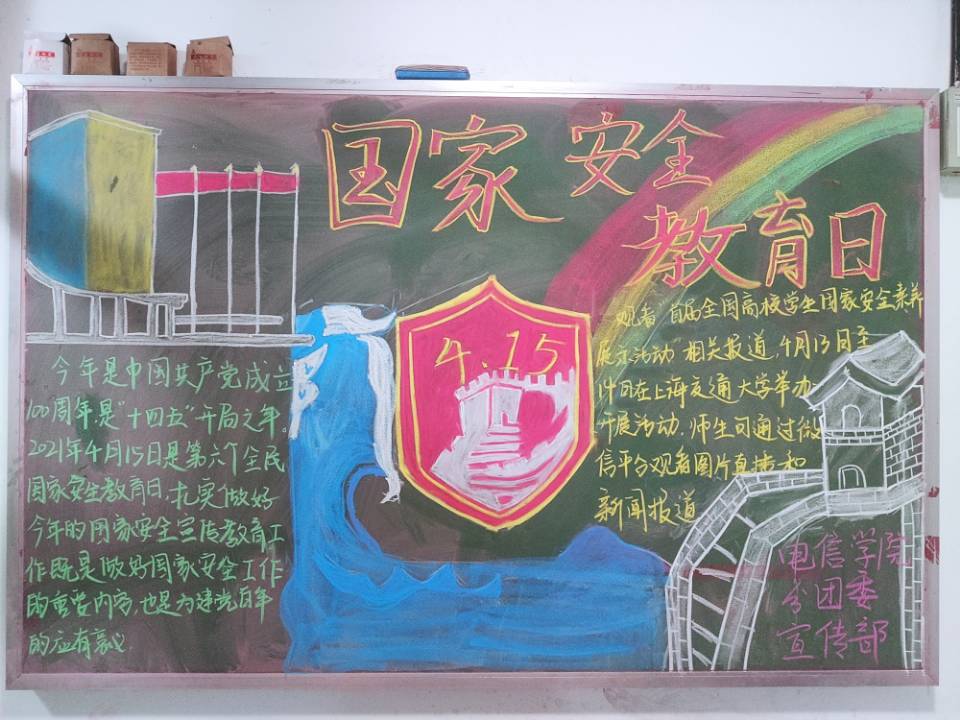 国家安全
教育日
4.15
今年是中国共产党成立
100周年,是"十四五"开局之年。
2021年4月15日是第六个全民
国家安全教育日,扎实做好
今年的国家安全宣传教育工
作既是做好国家安全工作
的重要内容,也是为建党百年
的应有意义
观看"首届全国高校学生国家安全素养
展示活动"相关报道,4月13日至
14日在上海交通大学举办
开展活动,师生可通过微
信平台观看图片直播和
新闻报道
电信学院
分团委
宣传部